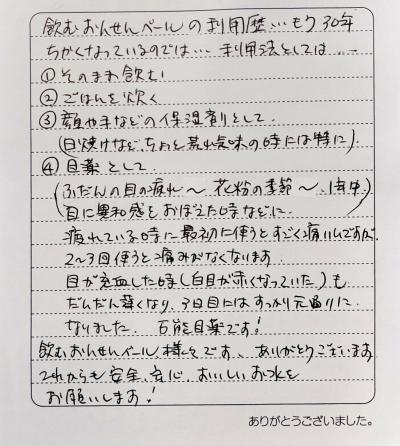 飲むおんせんベールの利用歴…もう30年
ちかくなっているのでは… 利用法としては…
①そのまま飲む
②ごはんを炊く
③顔や手などの保湿剤として
(日焼けなど、ちょっと荒れ気味の時には特に)
④目薬として
(ふだんの目の疲れ〜 花粉の季節〜1年中)
目に異和感をおぼえた時などに.
疲れている時に最初に使うとすごく痛いんですが
2〜3回使うと痛みがなくなります.
目が充血した時(白目が赤くなっていた)も
だんだん薄くなり、3日目にはすっかり元通りに
なりました. 万能目薬です!
飲むおんせんベール様々です、ありがとうございます
これからも安全、安心、おいしいお水を
お願いします!
ありがとうございました。